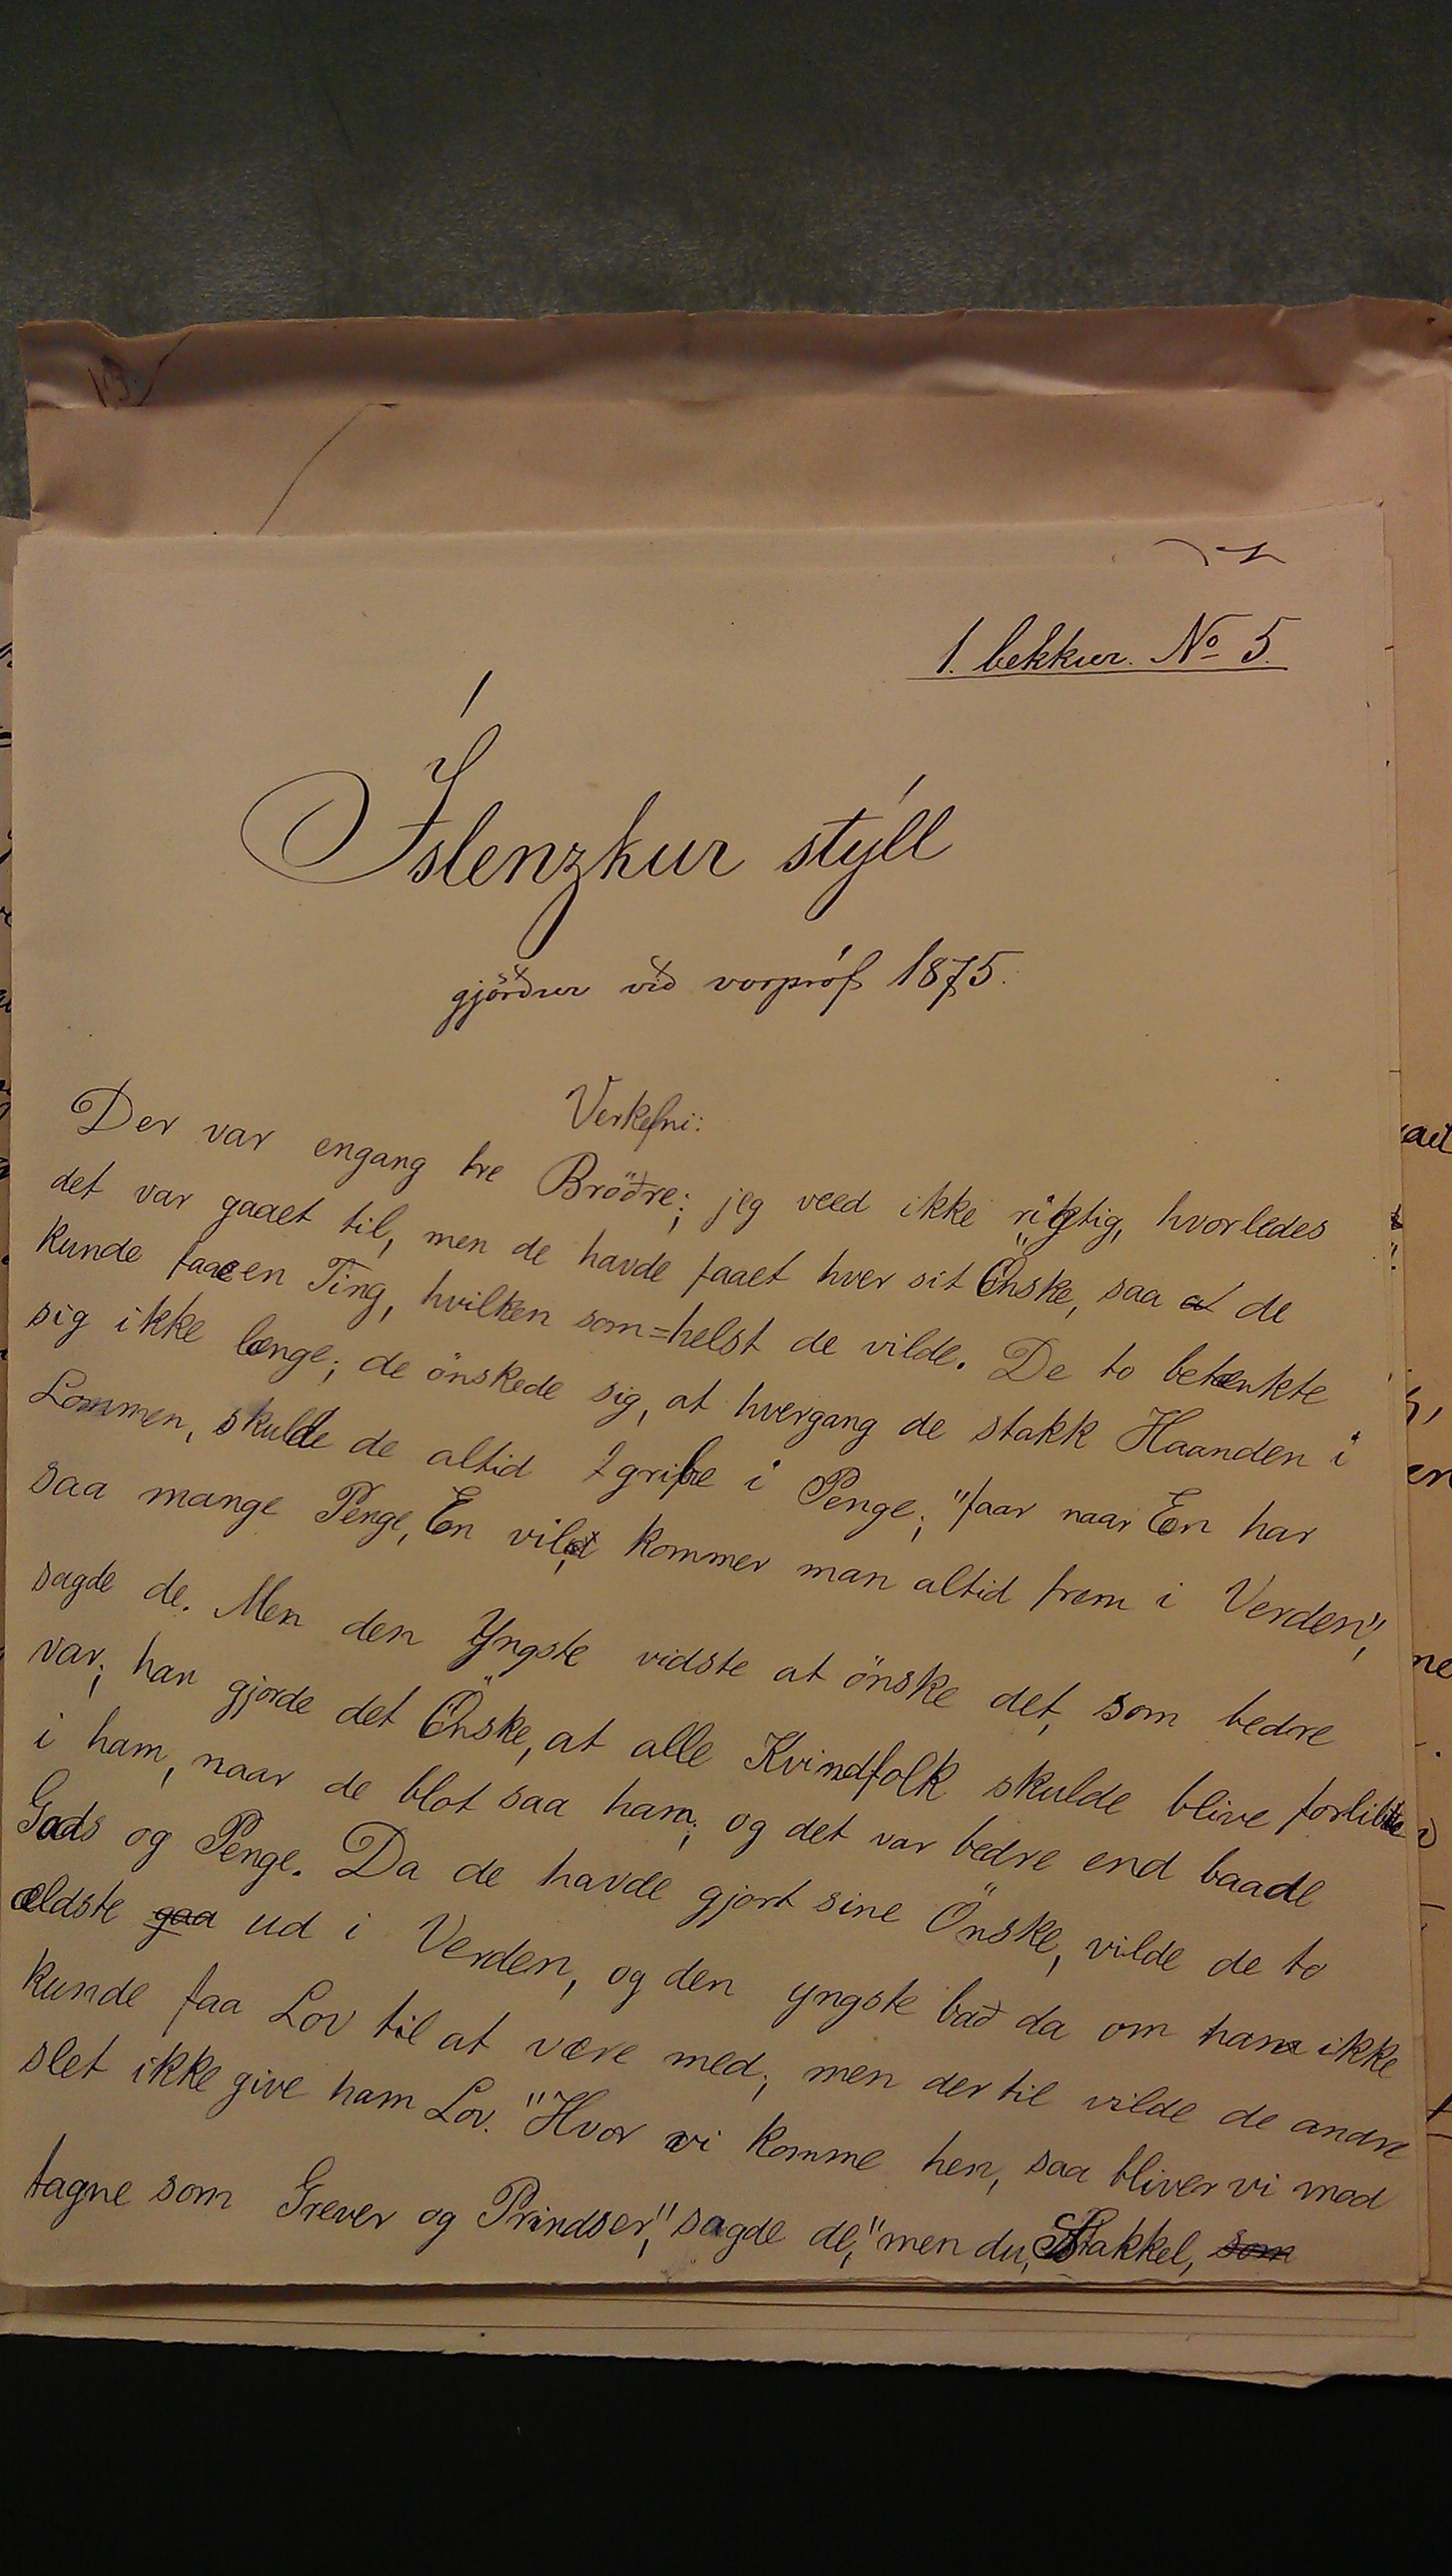 1. bekkur. No 5.
Íslenzkur stýll
gjörður við vorpróf 1875.
Verkefni:
Der var engang tre Bröðre; jeg veed ikke rigtig, hvorledes
det var gaaet til, men de havde faaet hver sit Önske, saa at de
kunde faae en Ting, hvilken som=helst de vilde. De to betænkte
sig ikke længe; de önskede sig, at hvergang de stakk Haanden i
Lommen, skulde de altid gribe i Penge; "faar naar En har
saa mange Penge, En vil, kommer man altid frem i Verden",
sagde de. Men den Yngste vidste at önske det, som bedre
var; han gjorde det Önske, at alle Kvindfolk skulde blive forlibte
i ham, naar de blot saa ham; og det var bedre end baade
Gods og Penge. Da de havde gjort sine Önske, vilde de to
ældste gaa ud i Verden, og den yngste bað da om han ikke
kunde faa Lov til at være med; men der til vilde de andre
slet ikke give ham Lov. "Hvor vi komme hen, saa bliver vi mod
tagne som Grever og Prindser," sagde de, "men du, Stakkel, som